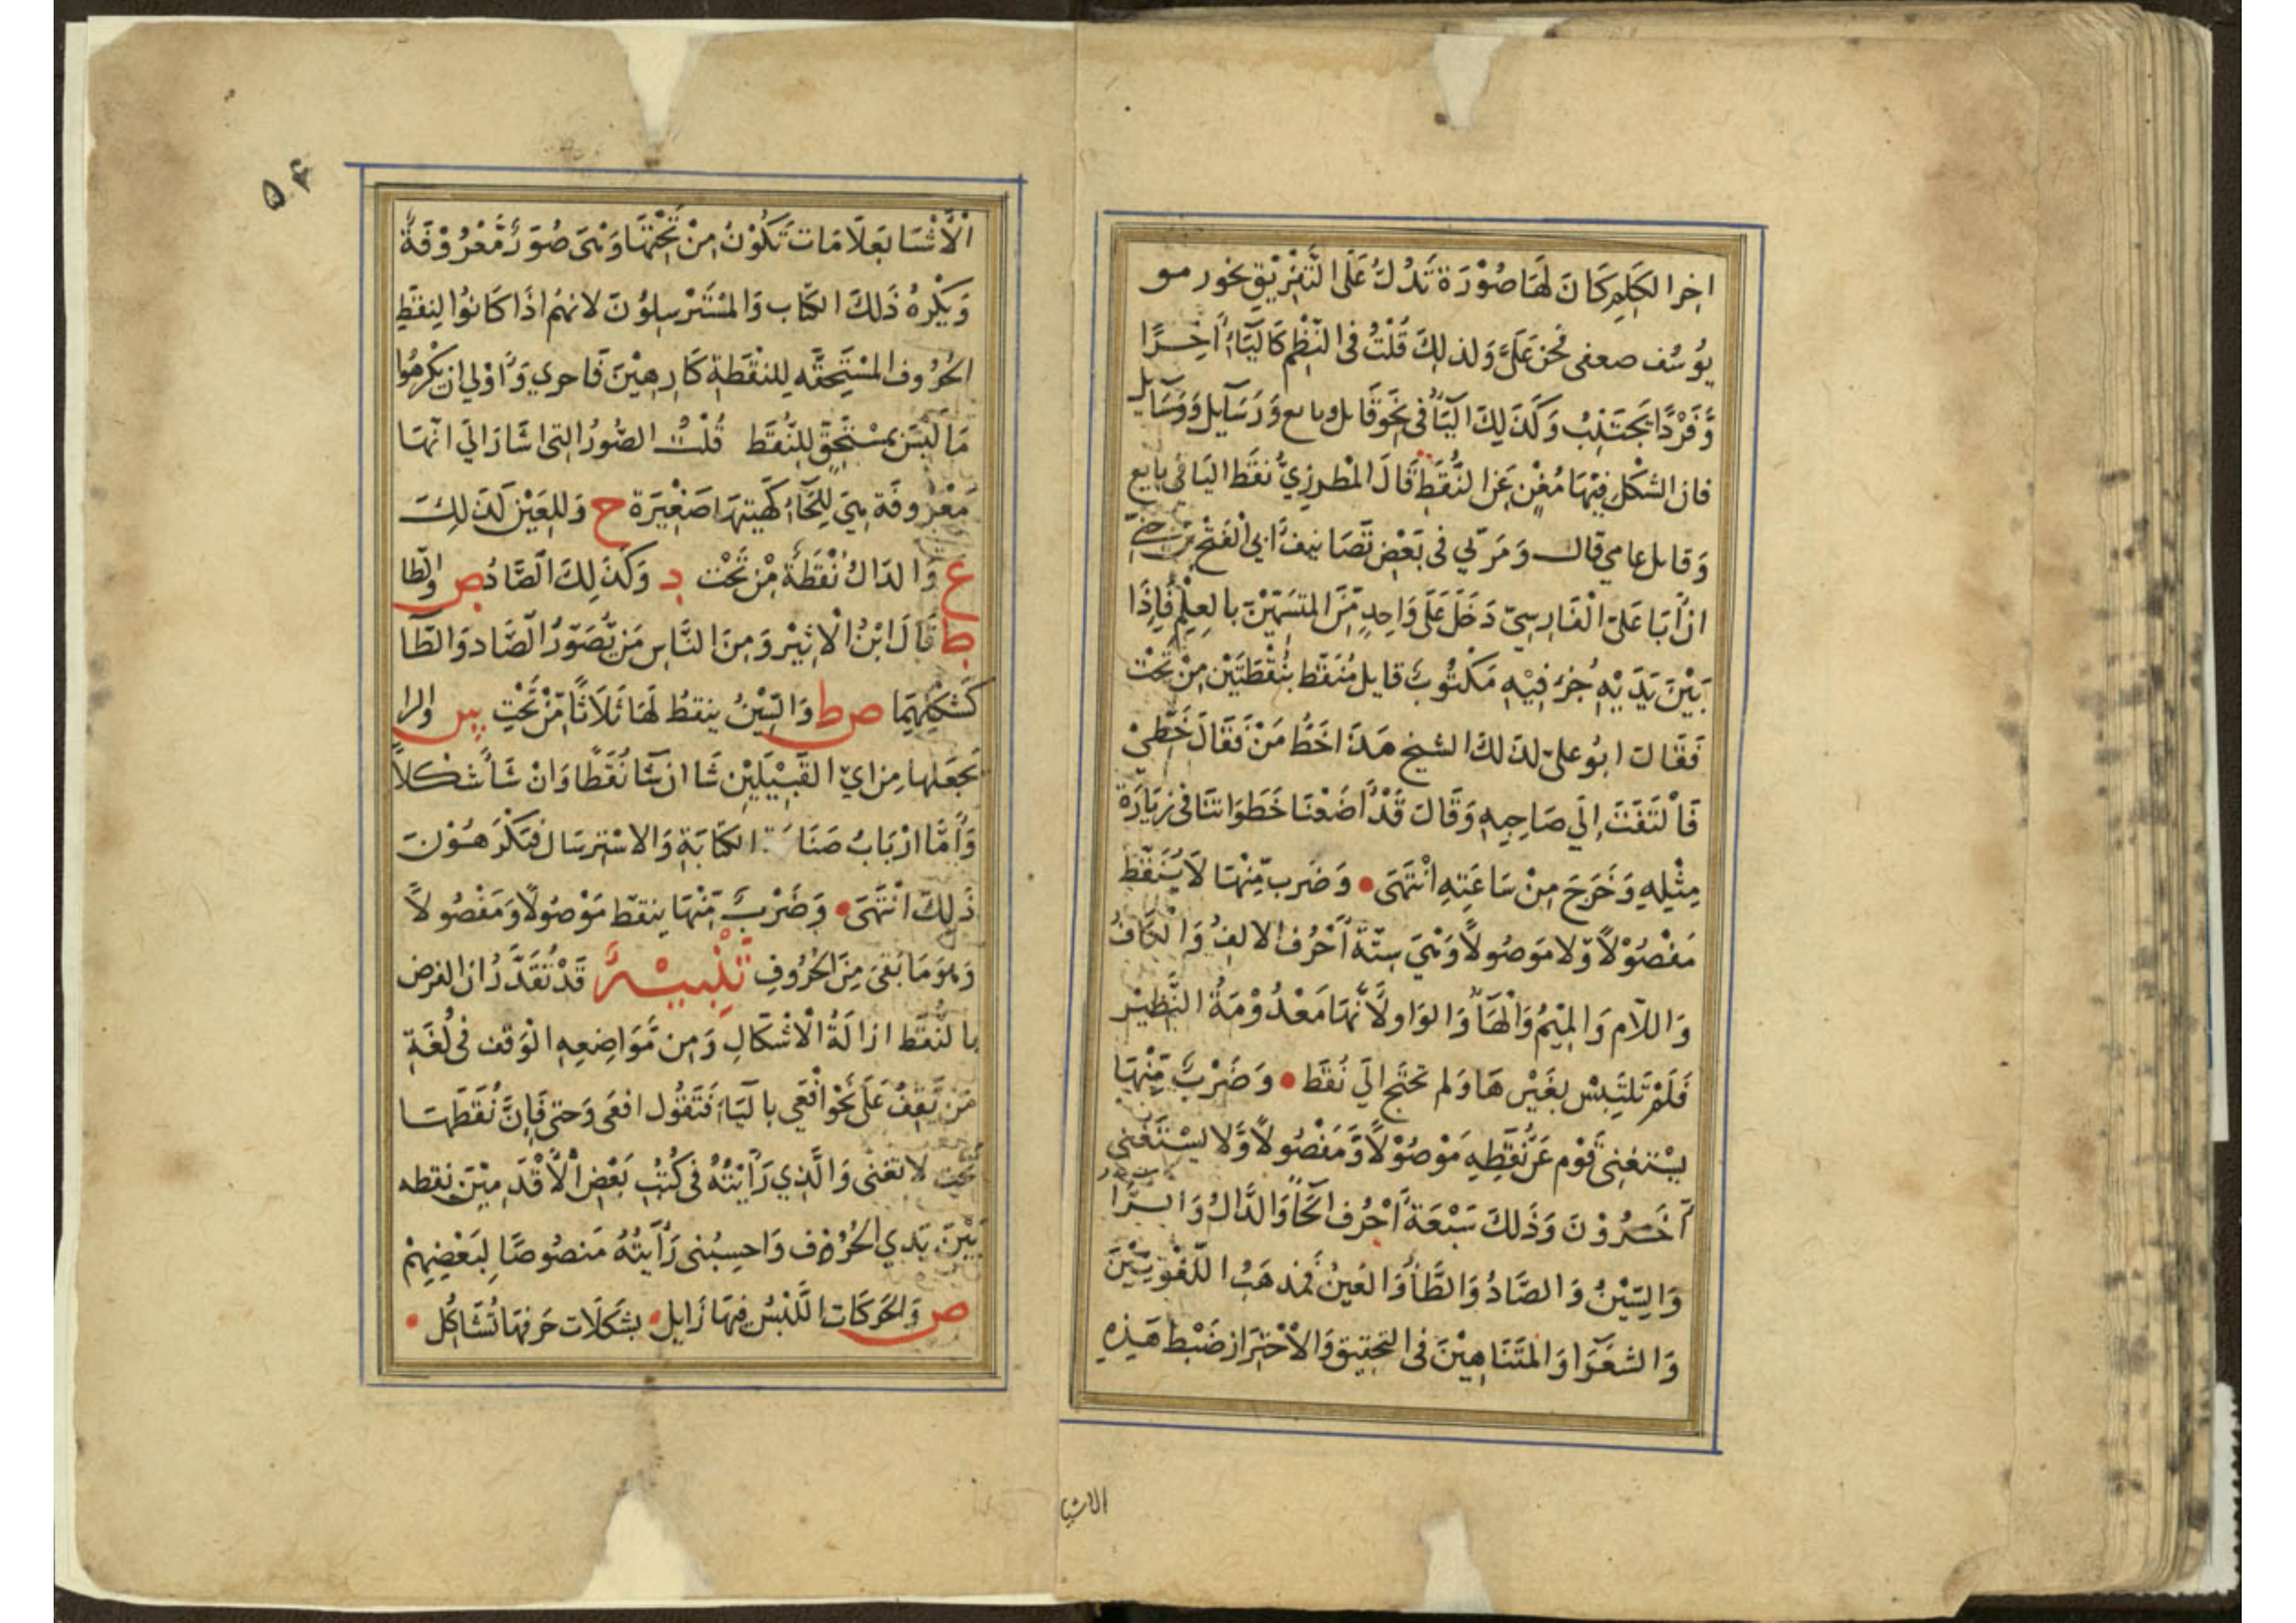 اخر الكَلِمِ كَانَ لَهَا صُوْرَة تَدُلُّ عَلَى التَّفْرِيْقِ نحو ر مو
يُوسُف صعفى نحن عَلَىَّ وَلذلِكَ قُلْتُ فى النَّظْمِ كَاليَآءِ أَخِرًا
وَّفَرْدًا يَجْتَنِبُ وَكَذَلِكَ اليَآُ فى نَحْوِ قَايل وبايع وَرَسَآيل وَوَسَآيل
فان الشكْلَ فِيْهَا مُغْنٍ عَن النُّقَطِ قَالَ المْطرزِيُّ نُقَط اليَا فى بايع
وَقايل عامي قال وَمَرّ بي فى بَعْض تَصَانيف أَبي الْفَتْح بْن جِنّى
انّ أَبَا عَلىّ الْفَارِسيّ دَخَلَ عَلَى وَاحِدٍ مِّنَ المتسَمّيْنَ بالعِلْمِ فَإِذَا
بَيْنَ يَدَيْهِ جُزء فِيْهِ مَكْتُوبٌ قايل مُنَقَّط بنُقْطَتَيْن مِنْ تَحْت
فَقَالَ ابُو علىّ لذلكَ الشيخ هَذَا خَطُّ مَنْ فَقَالَ خَطِّيْ
فَالْتَفَتَ إِلَي صَاحِبِهِ وَقَالَ قَدْ أَضَعْنَا خَطَوَاتنَا فى زيَارَة
مِثْلِهِ وَخَرَجَ مِنْ سَاعَتِهِ انْتَهَى • وَضَرب مِّنْهَا لَا يُنَقَّط
مَفْصُوْلًا وَّلا مَوصُولًا وَهْيَ سِتّةُ أَحْرُف الالِفُ وَالكَافُ
وَاللَّام وَالمِيْمُ وَالْهَآُ وَالوَاو لأَنّهَا مَعْدُوْمَةُ النَّظِيْر
فَلَمْ تَلْتَبِسْ بِغَيْرهَا وَلم تحتَج الَي نُقَط • وَضَرْبٌ مِّنْهَا
يسْتغْنِى قَوْم عَن نُّقَطِهِ مَوْصُوْلًا وَّمَفْصُولًا وَّلا يسْتَغنى
آخَرُوْنَ وَذَلكَ سَبْعَةُ أَحْرُف الحَآُ وَالدَّالُ وَالرَّا
وَالسِّيْنُ وَالصَّادُ وَالطَّآُ وَالعَينُ فمذهَبُ اللّغوِيّيْنَ
وَالشعَرَا وَالمتَنَاهِيْنَ فى التحقِيق وَالاحْتِرَاز ضَبْط هَذِهِ
الاشيا
٥٤
الْأَشْيَا بعَلَامَات تَكُوْنُ مِنْ تَحْتهَا وَهْىَ صُوَرٌ مَّعْرُوْفَةٌ
وَيَكْرهُ ذَلكَ الكتَّاب وَالمْسْتَرْسِلُونَ لانهُم اذَا كَانوُا لِنقَطِ
الحُرُوف المسْتَحِقَّه لِلنقْطَةِ كَارِهِيْنَ فَاحري وَأَوْلي ان يكْرهُوا
مَا لَيْسَ بمسْتَحِقٍّ لِلنُّقَط قُلْتُ الصُّورُ التى اشَارَ الَي انّهَا
مَعْرُوفَة هِيَ لِلحَآءِ كَهَيئتهَا صَغِيْرَة ح وَلِلعَيْن كَذَلِكَ
ع وَالدَال نُقْطَةٌ مِّنْ تَحْت د وَكَذَلِكَ الصَّادُ ص والطا
ط قَالَ ابْنُ الْاثِيْر وَمِنَ النَّاسِ مَن يُّصَوّرُ الصَّاد وَالطَّا
كَشكْلِهِمَا ص ط وَالسِّيْنُ ينقَطُ لَهَا ثَلَاثًا مِّنْ تَحْتِ س والرا
تَجعَلها مِن اي القَبِيْلَيْن شَا ان شَآ نُقَطًا وَانْ شَأ شَكْلاً
وَأَمَّا ارْبَابُ صَنَاعَة الكتَابَةِ وَالاسْترسَال فيَكْرَهُوْنَ
ذَلِكَ انْتَهَى • وَضَرْبٌ مّنْهَا ينقط مَوْصُولًا وَمَفْصُولاً
وَهوَ مَا بَقَىَ مِنَ الحُرُوفِ تَنْبِيْهٌ قَدْ تُقَدَّرُ ان الغرض
بالنُّقَط ازَالَةُ الْاشْكَالِ وَمِن مَّوَاضِعِهِ الوَقف فى لُغَةِ
مَن يَّقفُ عَلَى نَحْو افْعَي باليَآءِ فَتَقُول افعَى وَحتى فَإِنَّ نُقَطَهَا
تحت لا تغنى وَالَّذِي رَأَيْتُهُ فى كُتُبِ بَعْضِ الْأَقْدَمِيْنَ نقطه
بَيْنَ يَدَي الحُرُوْف وَاحسِبُنى رَأَيتُهُ مَنصُوصًا لِبَعْضِهِمْ
ص وَالحَرَكَات اللَّبْسُ فِيهَا زَايِل • بشَكَلَات حَرفهَا تُشَاكُل •